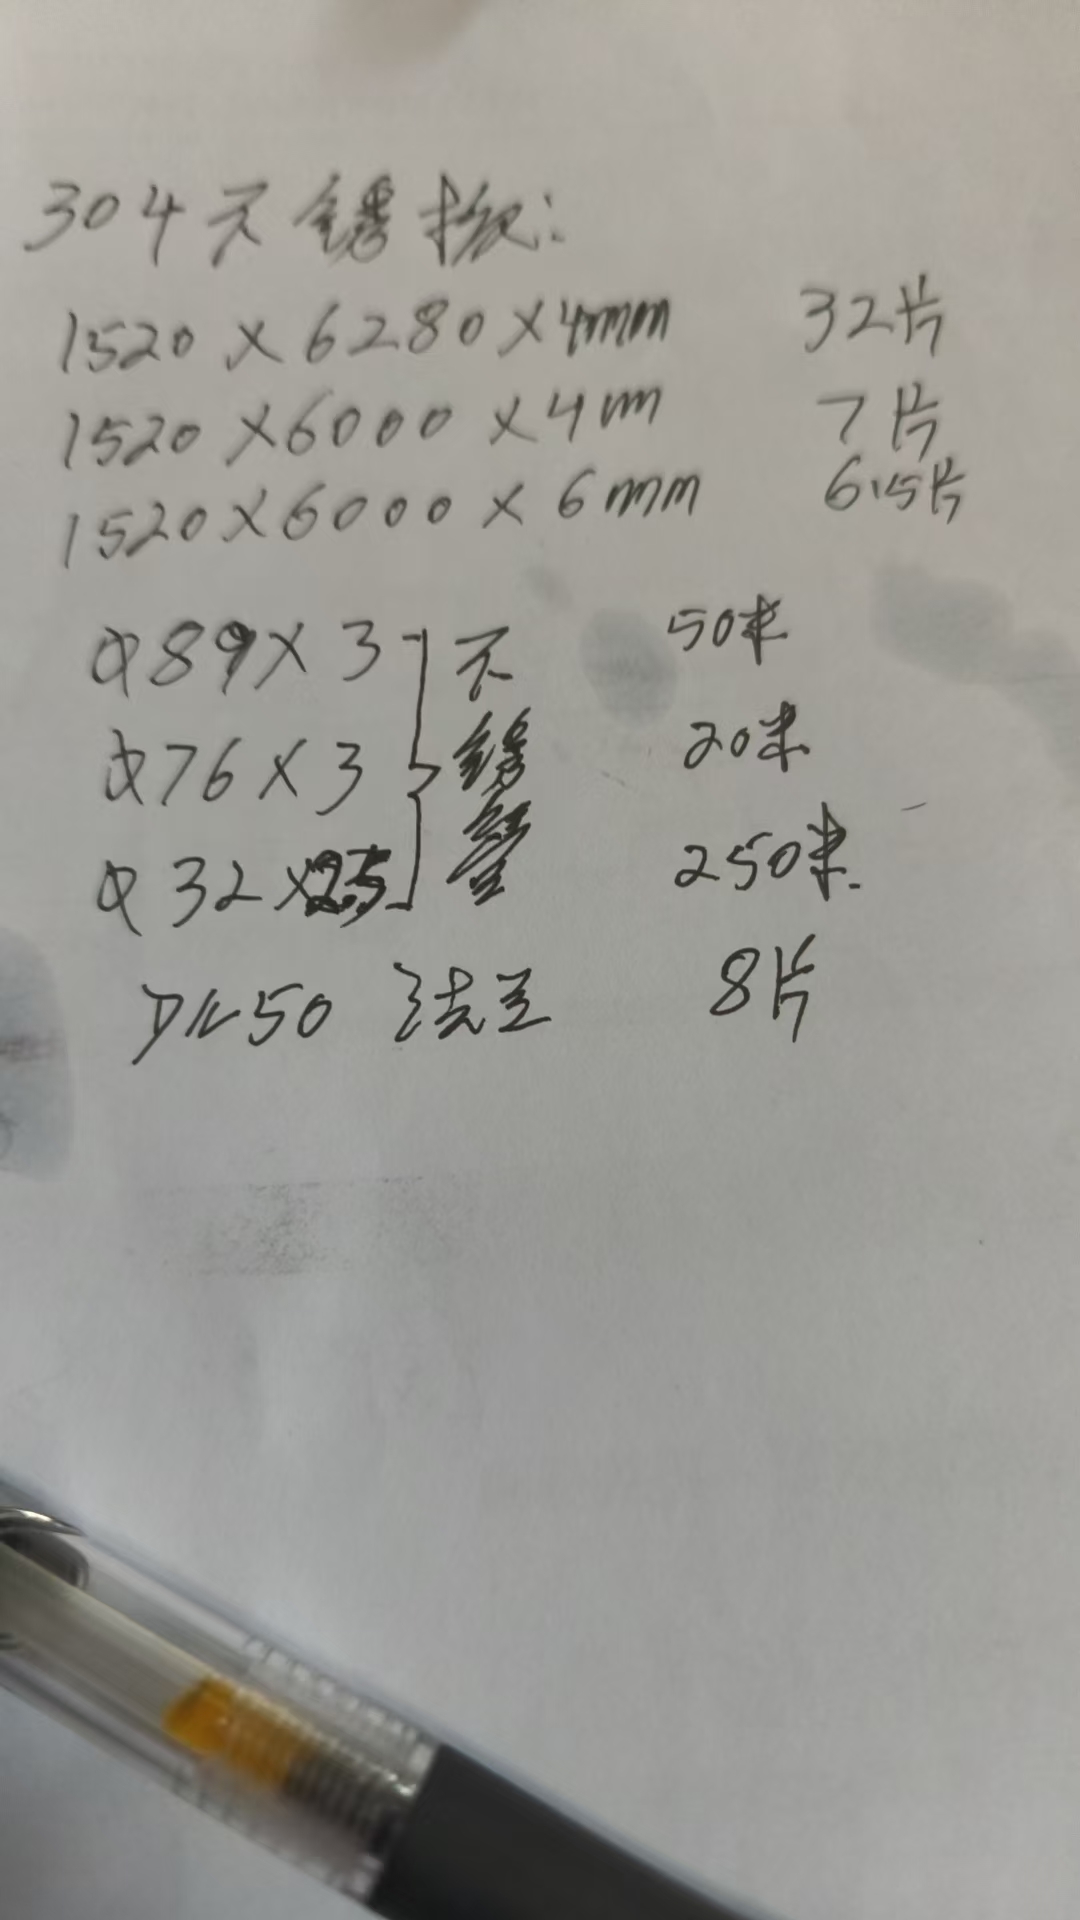 304不锈板:
1520×6280×4mm 32片
1520×6000×4m 7片
1520×6000×6mm 6.5片
Φ89×3 不 50米
Φ76×3 锈 20米
Φ32×2.5 管 250米.
DN50 法兰 8片